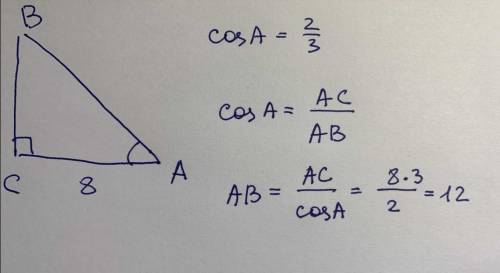 B
C
8
A
cos A = 2/3
cos A = AC/AB
AB = AC/cosA = 8·3/2 = 12